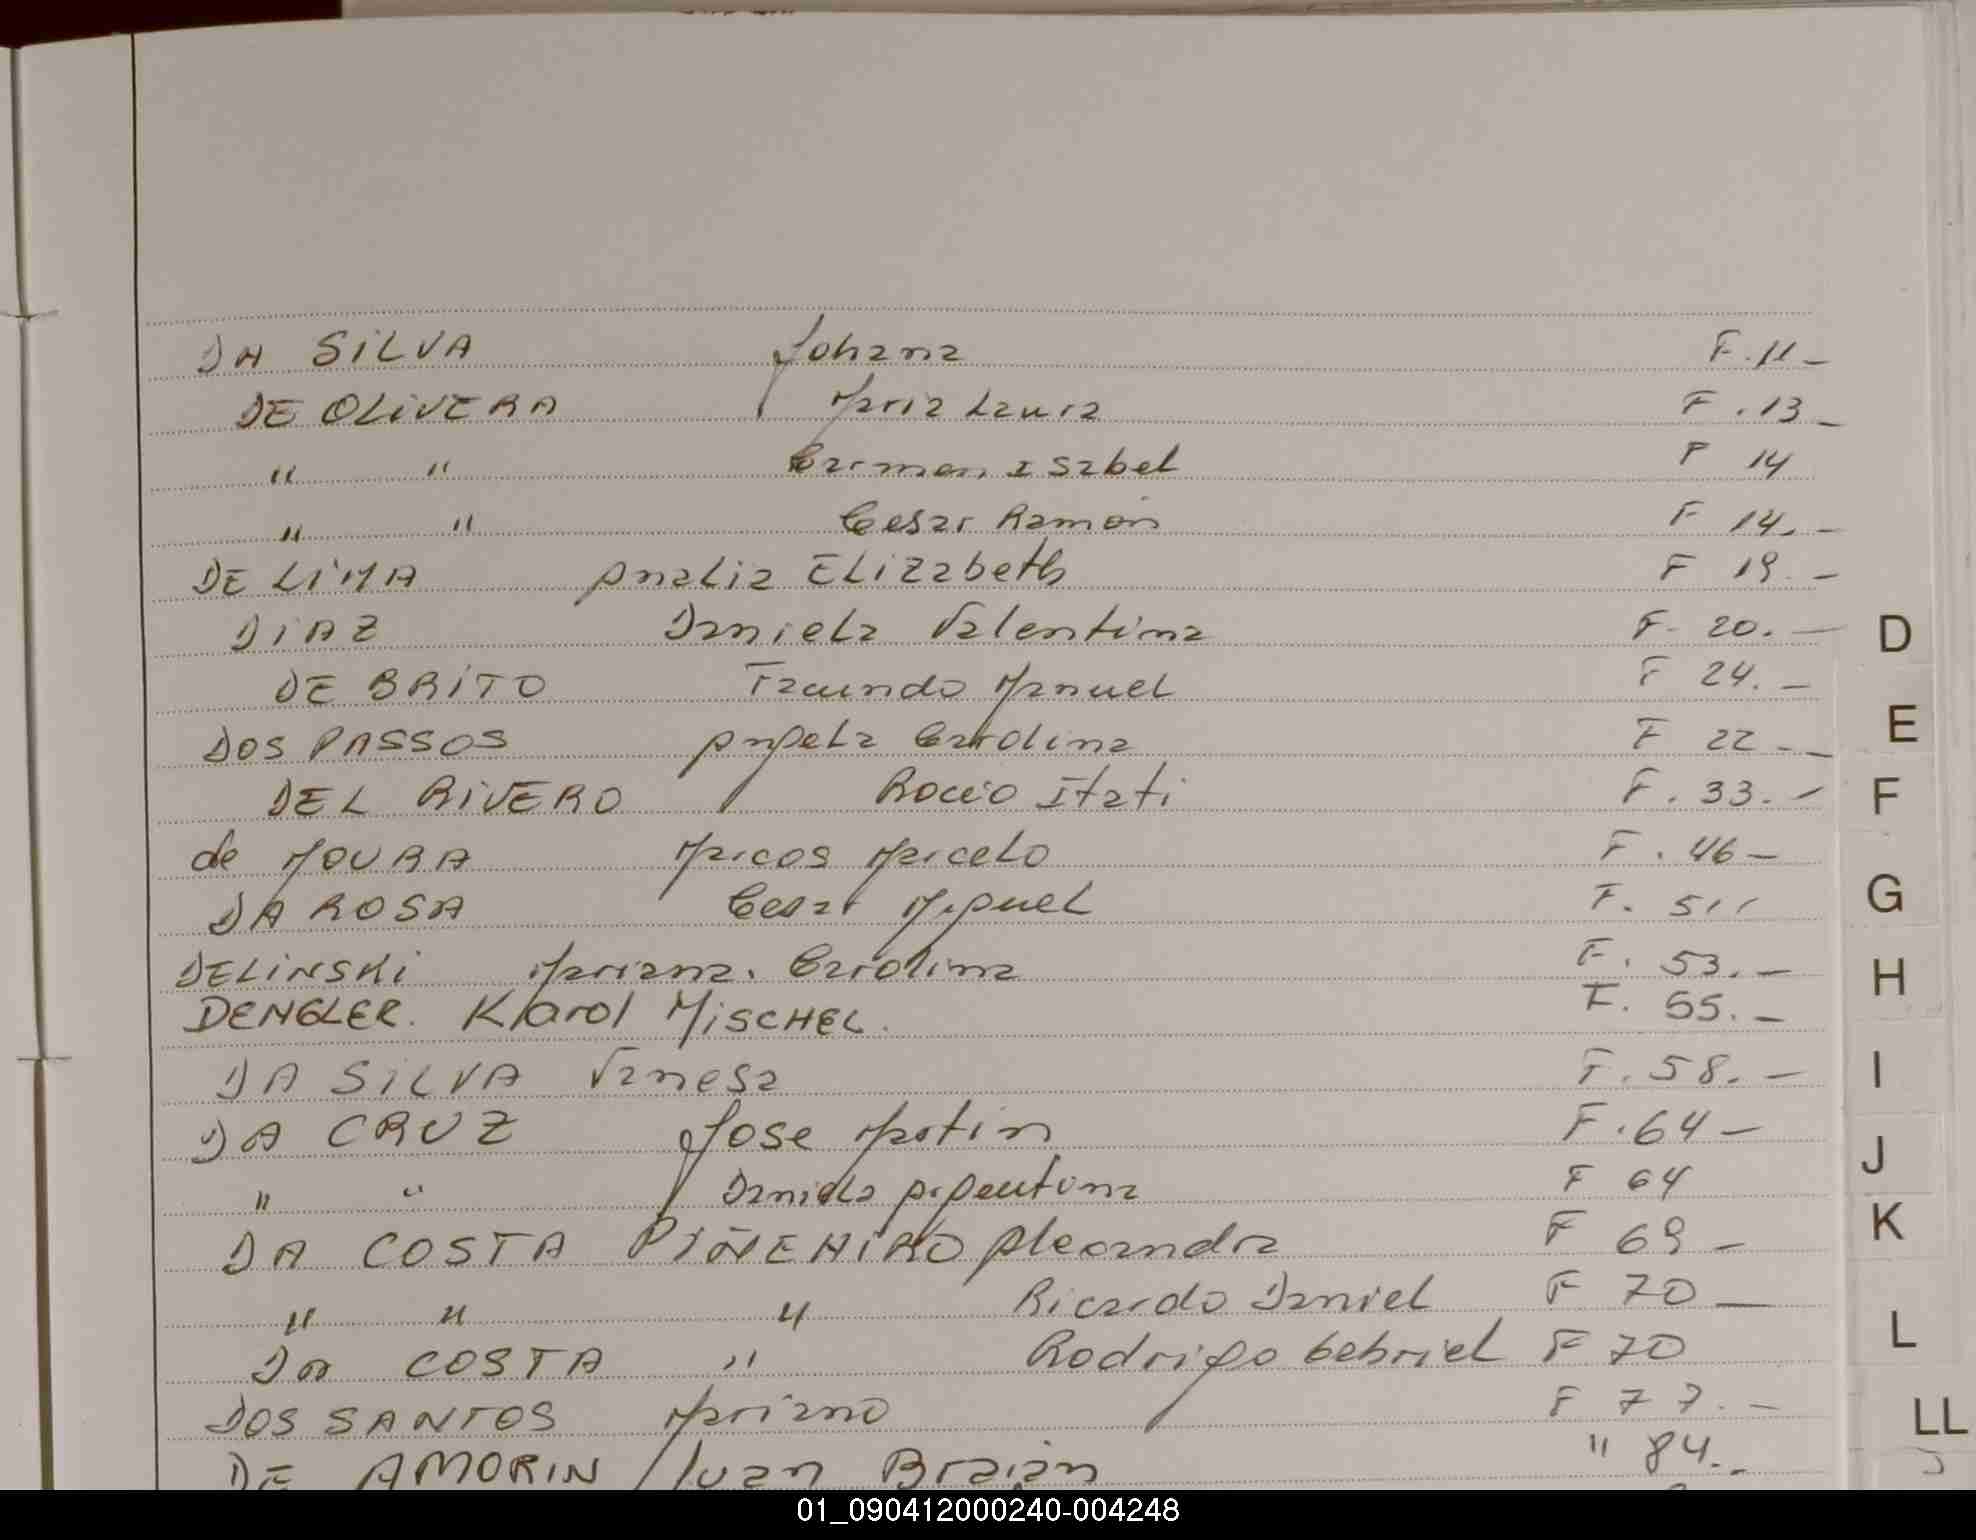 DA SILVA Johana F. 11 -
DE OLIVERA Maria Laura F. 13 -
" " Carmen Isabel F 14
" " Cesar Ramon F 14. -
DE LIMA Analia Elizabeth F 19. -
DIAZ Daniela Valentina F. 20. -
D
DE BRITO Facundo Manuel F 24. -
DOS PASSOS Angela Carolina F 22 - -
E
DEL RIVERO Rocio Itati F. 33. -
F
de MOURA Marcos Marcelo F. 46 -
DA ROSA Cesar Miguel F. 51
G
DELINSKI Mariana. Carolina F. 53. -
H
DENGLER. Karol MISCHEL. F. 55. -
DA SILVA Vanesa F. 58. -
I
DA CRUZ Jose Martin F. 64 -
J
" " Daniela Argentina F 64
K
DA COSTA PIÑEHIRO Aleandra F 69 -
" " " Ricardo Daniel F 70 -
DA COSTA " Rodrigo Gabriel F 70
L
DOS SANTOS Mariano F 77. -
LL
DE AMORIN Juan Braian " 84. -
01_090412000240-004248